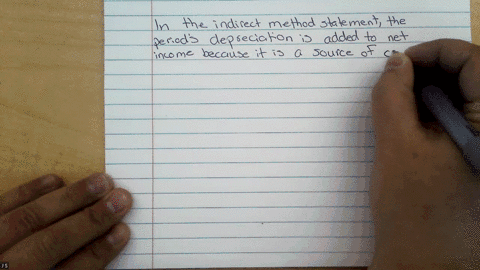 In the indirect method statement, the
period's depreciation is added to net
income because it is a source of